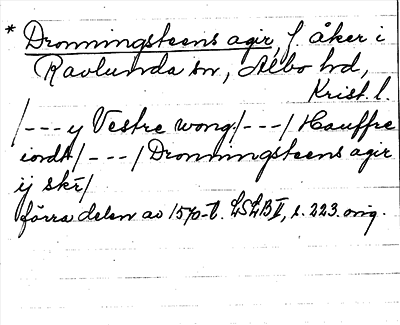 * Dronningsteens agir, f åker i
Ravlunda sn, Albo hd,
Krist. l.
/--- y Vestre wong/---/ Hauffre
iordt/---/ Dronningsteens agir
ij skr/
förra delen av 1570-t. LSLB II, s. 223. orig.